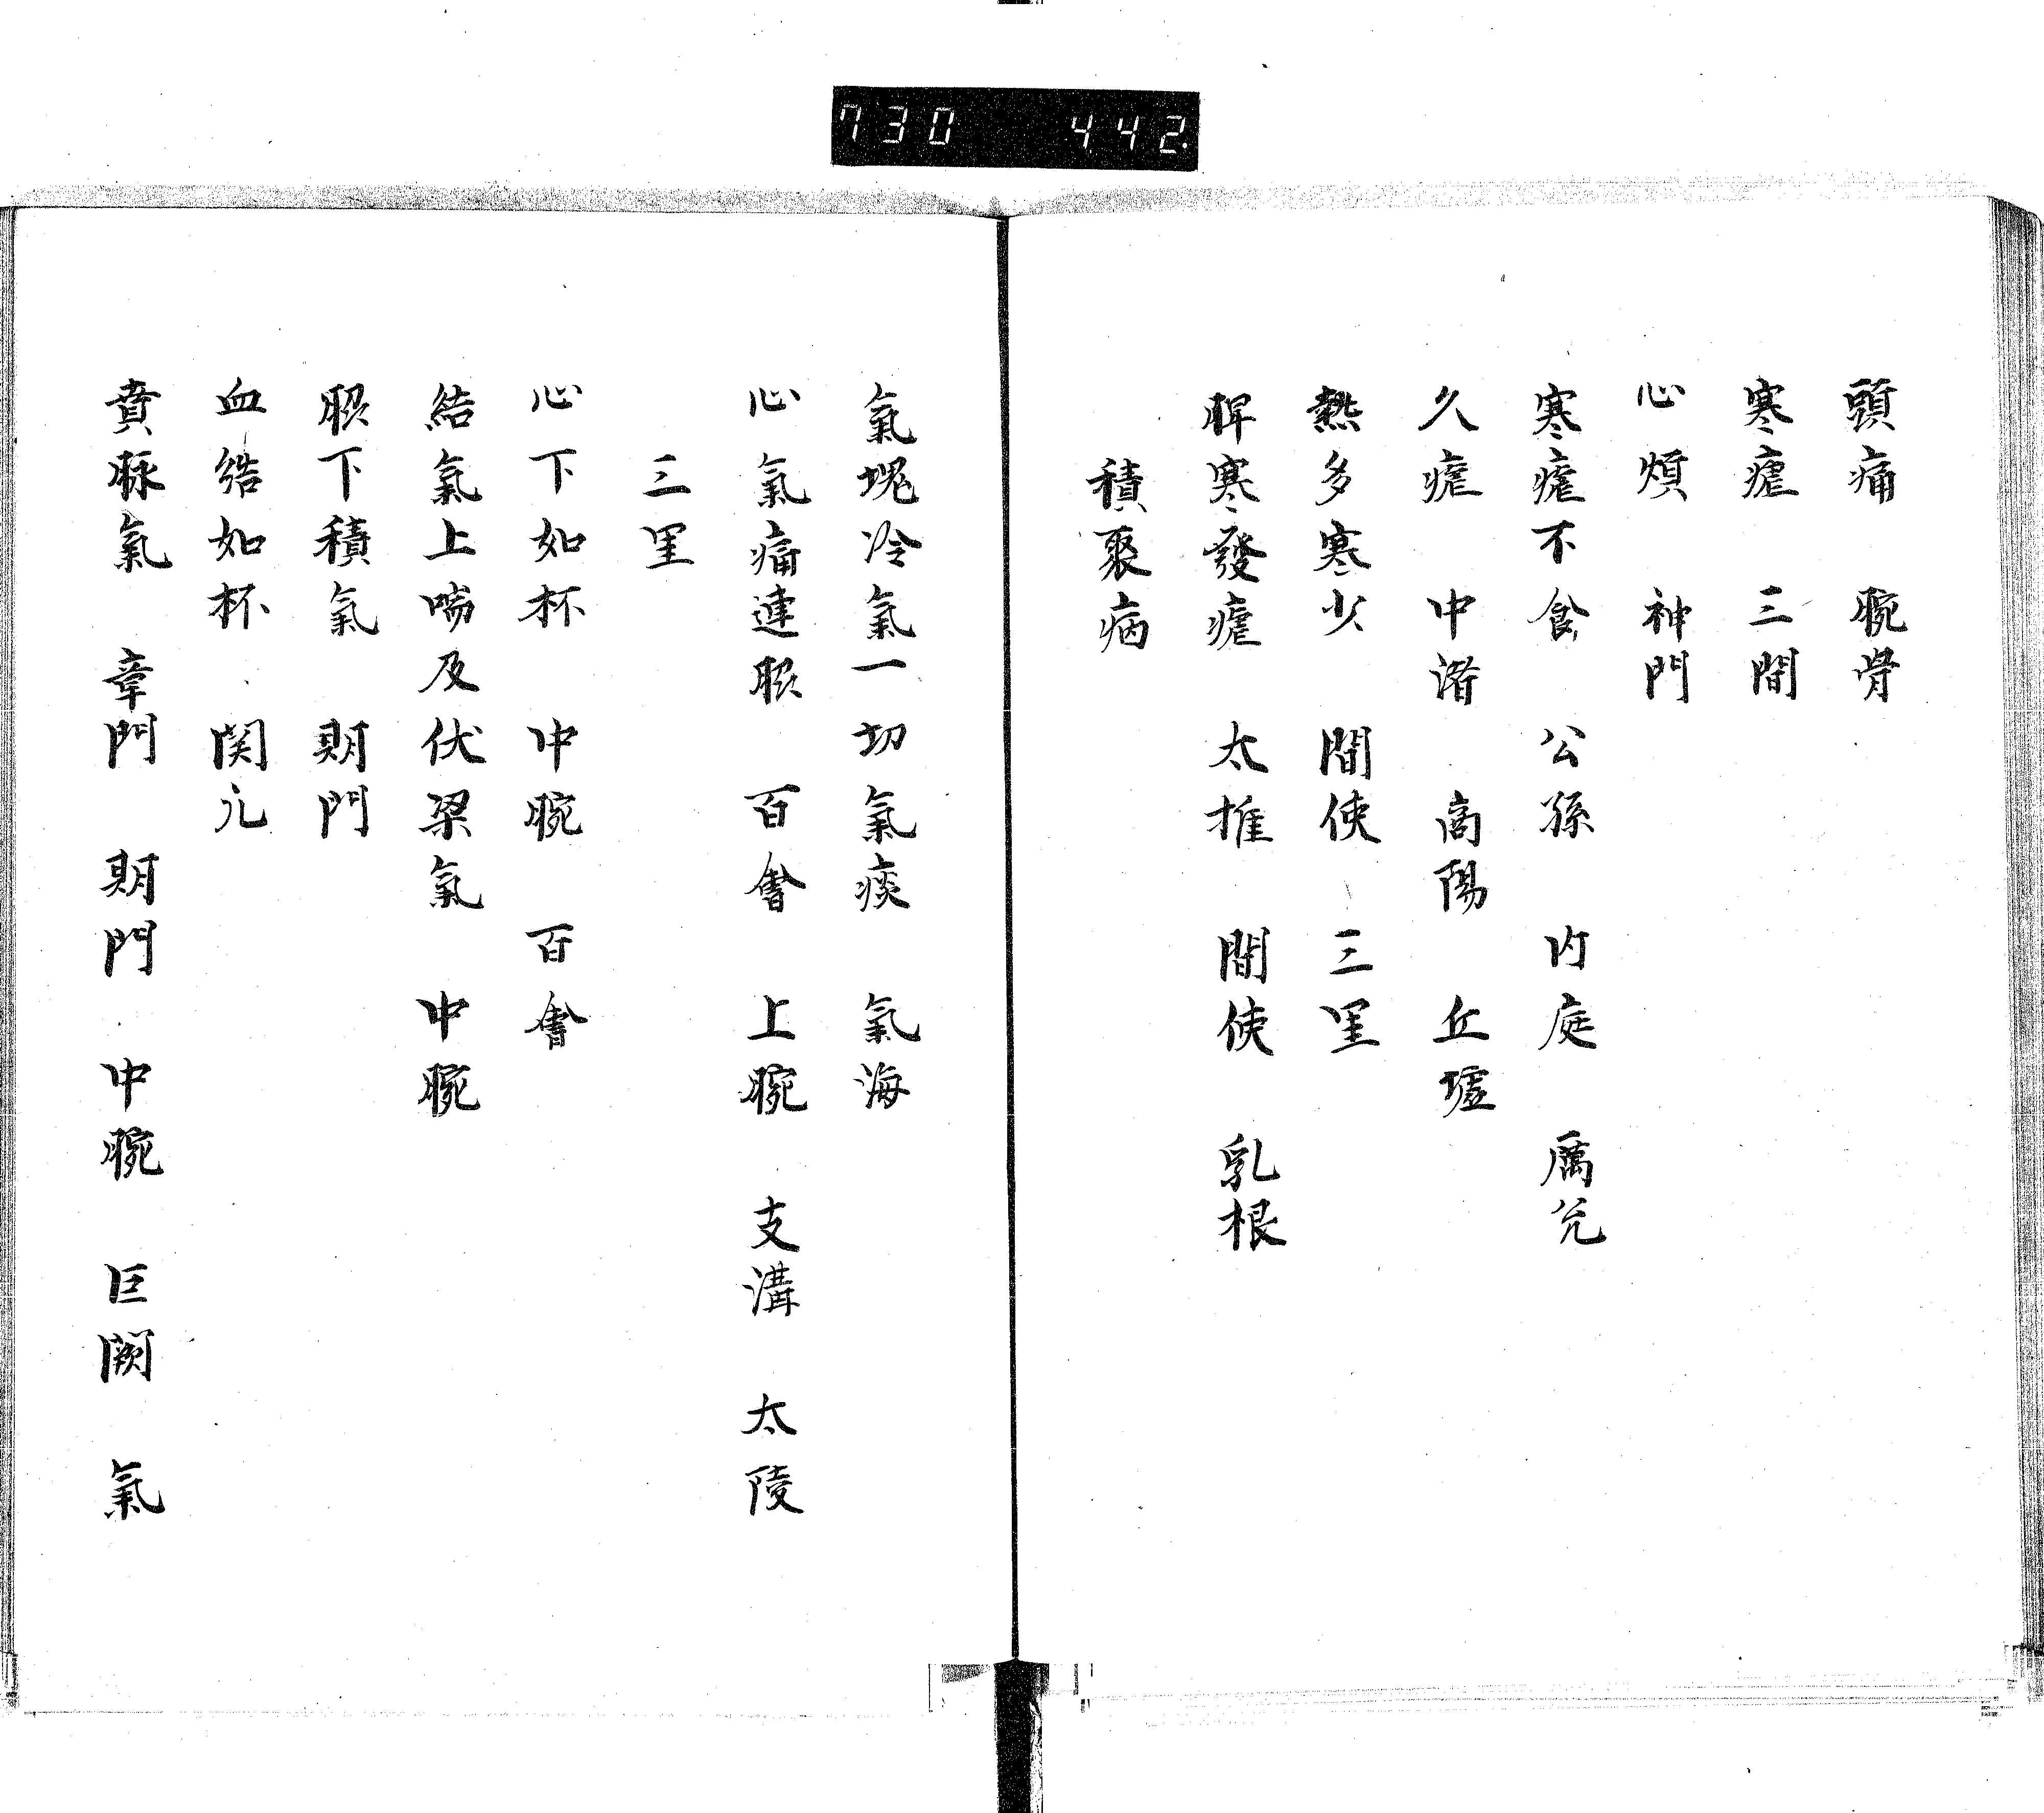 730 442
頭痛　腕骨
寒瘧　三間
心煩　神門
寒瘧不食　公孫　內庭　厲兊
久瘧　中渚　商陽　丘墟
熱多寒少　間使　三里
脾寒發瘧　太椎　間使　乳根
積聚病
氣塊冷氣一切氣痰　氣海
心氣痛連脇　百會　上腕　支溝　太陵
三里
心下如杯　中腕　百會
結氣上喘及伏梁氣　中腕
脇下積氣　期門
血结如杯　関元
賁豚氣　章門　期門　中腕　巨闕　氣